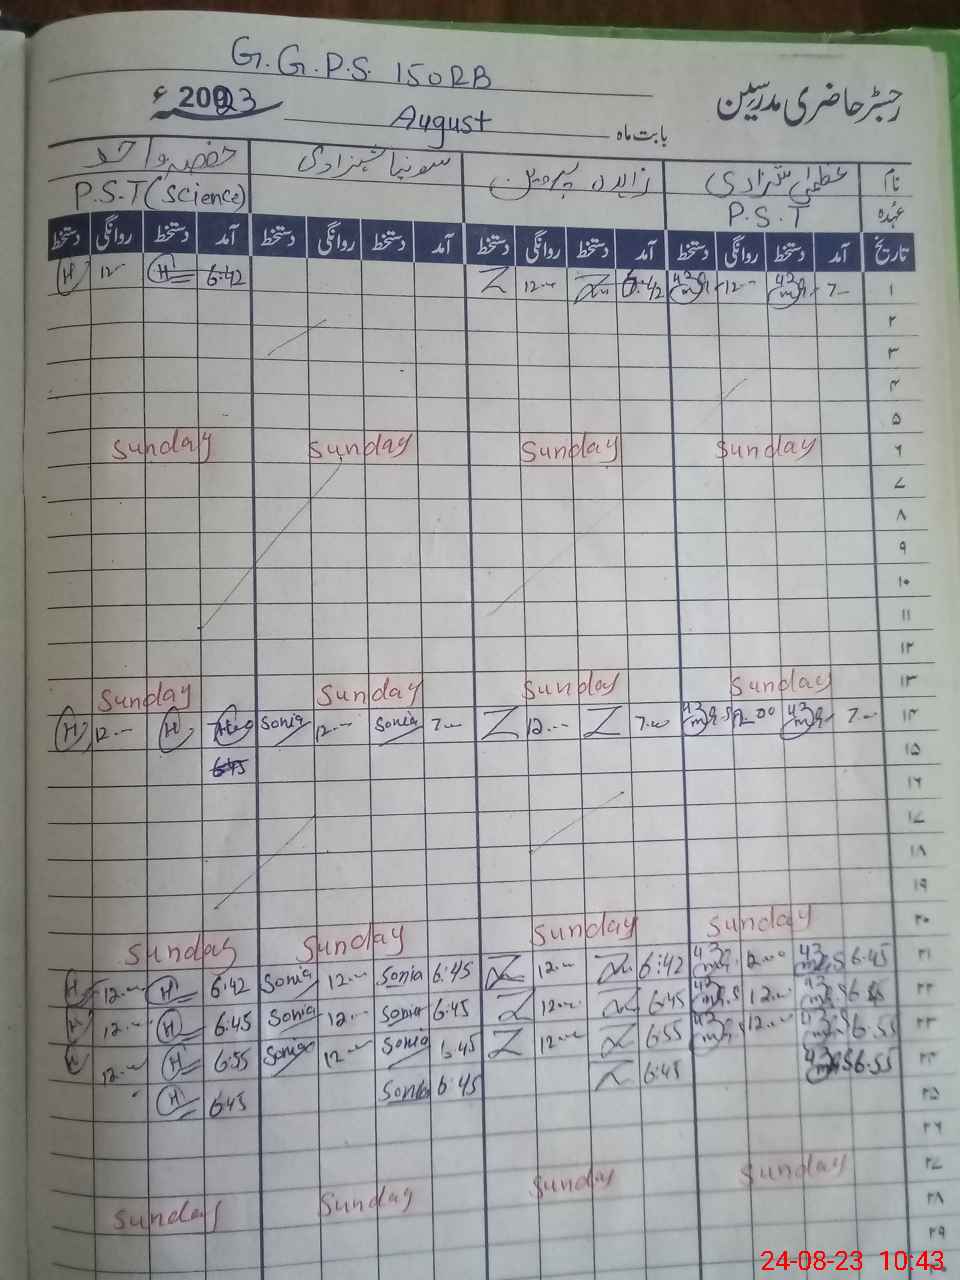 G.G.P.S. 150RB
رجسٹر حاضری مدرسین
2023ء
بابت ماہ August
نام عظمیٰ شہزادی زاہدہ پروین سونیا شہزادی حفصہ واحد
عہدہ P.S.T P.S.T (Science)
تاریخ آمد دستخط روانگی دستخط آمد دستخط روانگی دستخط آمد دستخط روانگی دستخط آمد دستخط روانگی دستخط
۱ 7- 12- 6:42 Z 12- Z 6:42 H 12- H
۲
۳
۴
۵
۶ Sunday Sunday Sunday Sunday
۷
۸
۹
۱۰
۱۱
۱۲
۱۳ Sunday Sunday Sunday Sunday
۱۴ 7- 12-00 7-00 Z 12- Z 7-00 Sonia 12- Sonia H 12- H
۱۵ 6:45
۱۶
۱۷
۱۸
۱۹
۲۰ Sunday Sunday Sunday Sunday
۲۱ 6:45 12-00 6:42 Z 12- Z 6:45 Sonia 12- Sonia 6:42 H 12- H
۲۲ 6:45 12- 6:45 Z 12- Z 6:45 Sonia 12- Sonia 6:45 H 12- H
۲۳ 6:55 12- 6:55 Z 12- Z 6:45 Sonia 12- Sonia 6:55 H 12- H
۲۴ 6:55 6:45 Z 6:45 Sonia 6:45 H
۲۵
۲۶
۲۷ Sunday Sunday Sunday Sunday
۲۸
۲۹
24-08-23 10:43